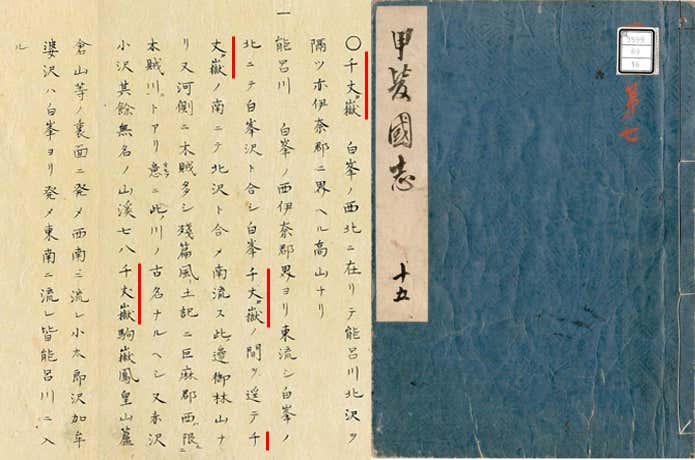 甲斐國志
十五
第七
3599
69
16
〇千丈嶽 白峯ノ西北ニ在リテ能呂川北沢ヲ
隔ツ亦伊奈郡ニ界ヘル高山ナリ
一
能呂川 白峯ノ西伊奈郡界ヨリ東流シ白峯ノ
北ニテ白峯沢ト合シ白峯千丈嶽ノ間ヲ遥テ千
丈嶽ノ南ニテ北沢ト合メ南流ス此邉御林山ナ
リ又河側ニ木賊多シ残篇風土記ニ巨麻郡西限ニ
木賊川トアリ意ニ此ノ川ノ古名ナルヘシ又赤沢
小沢其餘無名ノ山溪七八千丈嶽駒嶽鳳皇山蘆
倉山等ノ裏面ニ発メ西南ニ流レ小太郎沢加牟
婆沢ハ白峯ヨリ発メ東南ニ流レ皆能呂川ニ入
ル